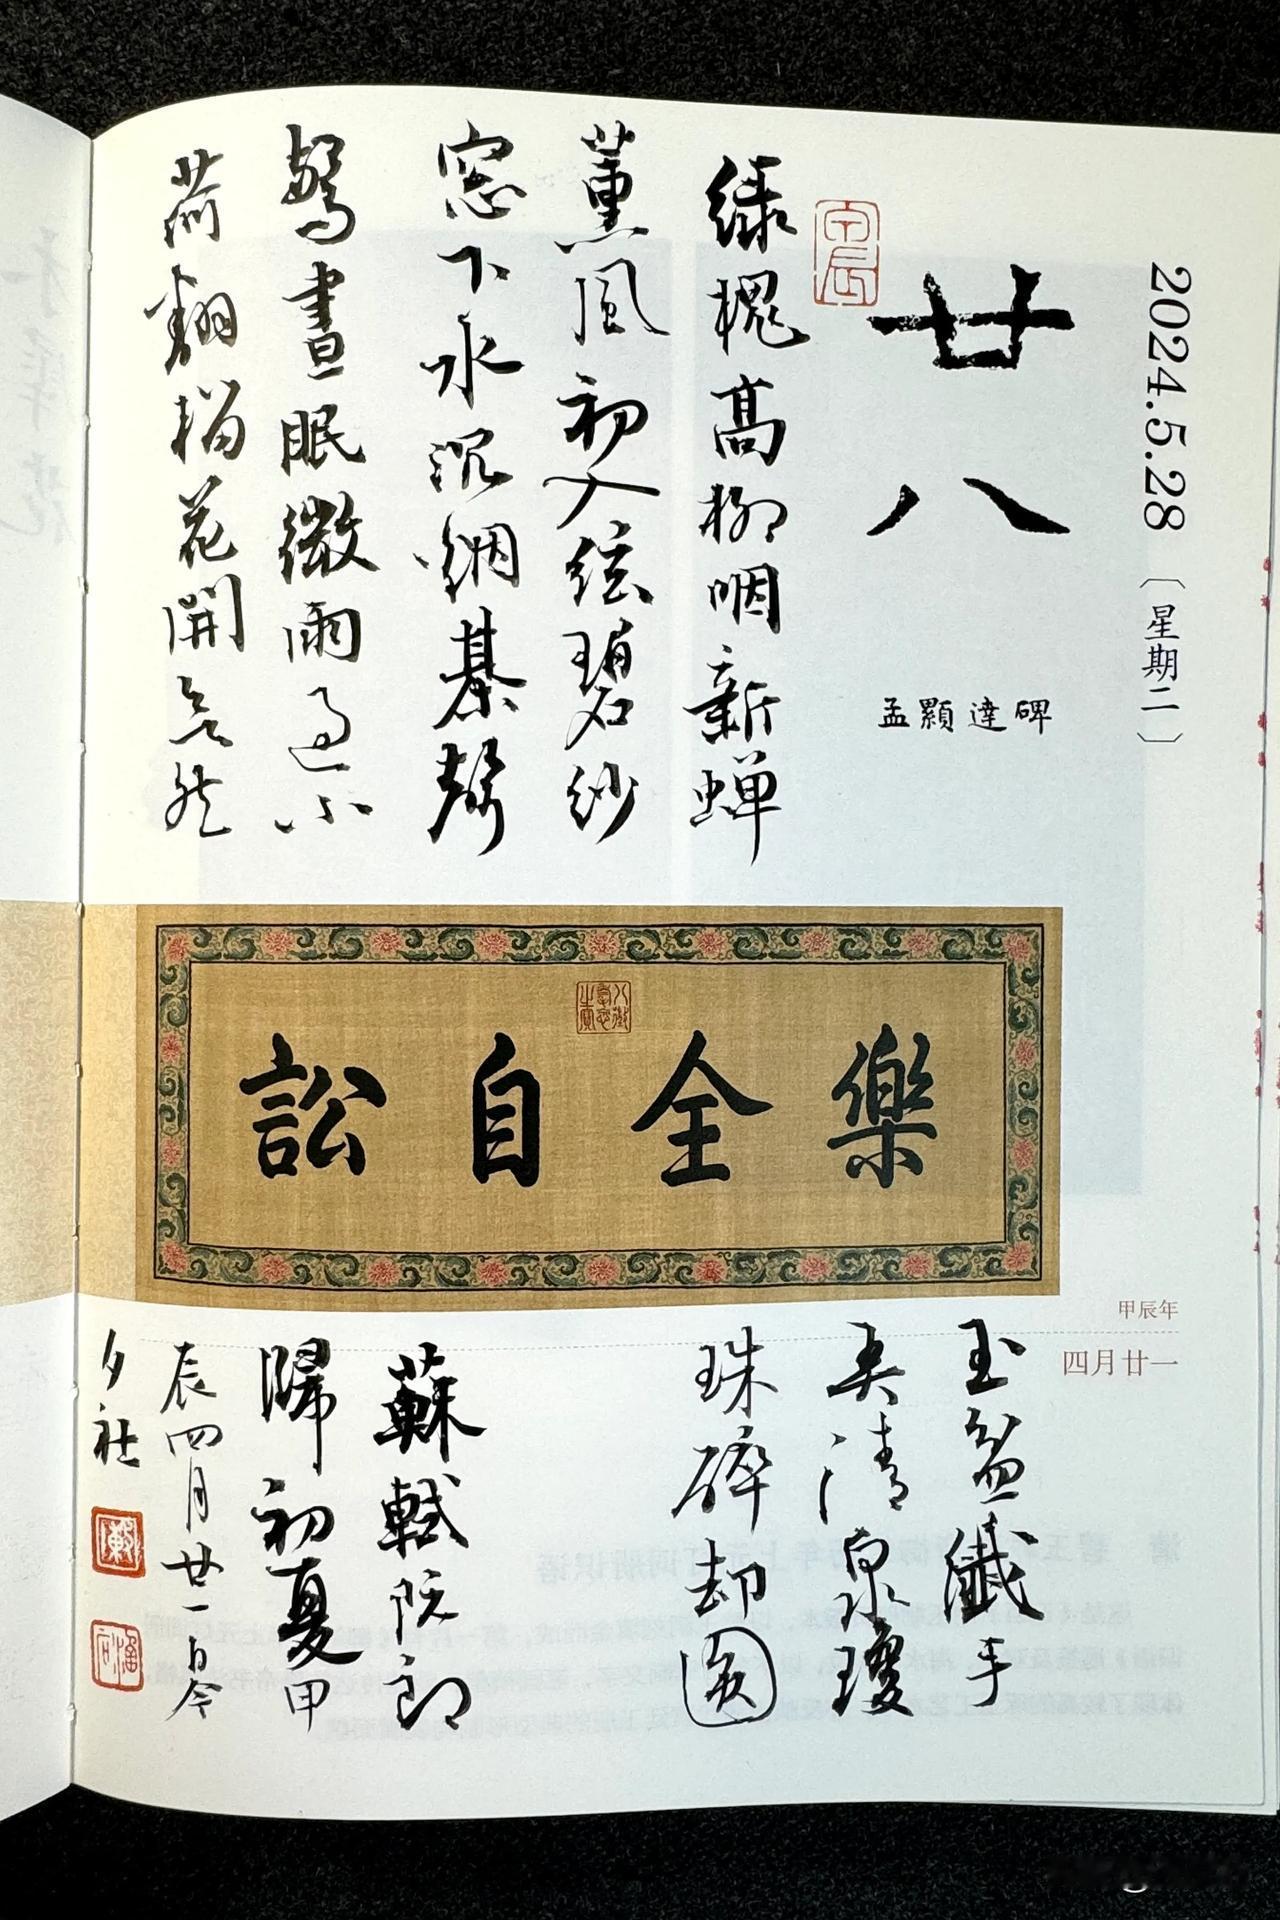 2024.5.28〔星期二〕
廿八
孟顯達碑
甲辰
綠槐高柳咽新蟬
薰風初入絃碧紗
窓下水沉烟碁聲
驚晝眠微雨過小
荷翻榴花開欲然
樂全自訟
八徵耄念之寶
甲辰年
四月廿一
玉盆纖手
弄清泉瓊
珠碎却圓
蘇軾阮郎
歸初夏甲
辰四月廿一日
夕社